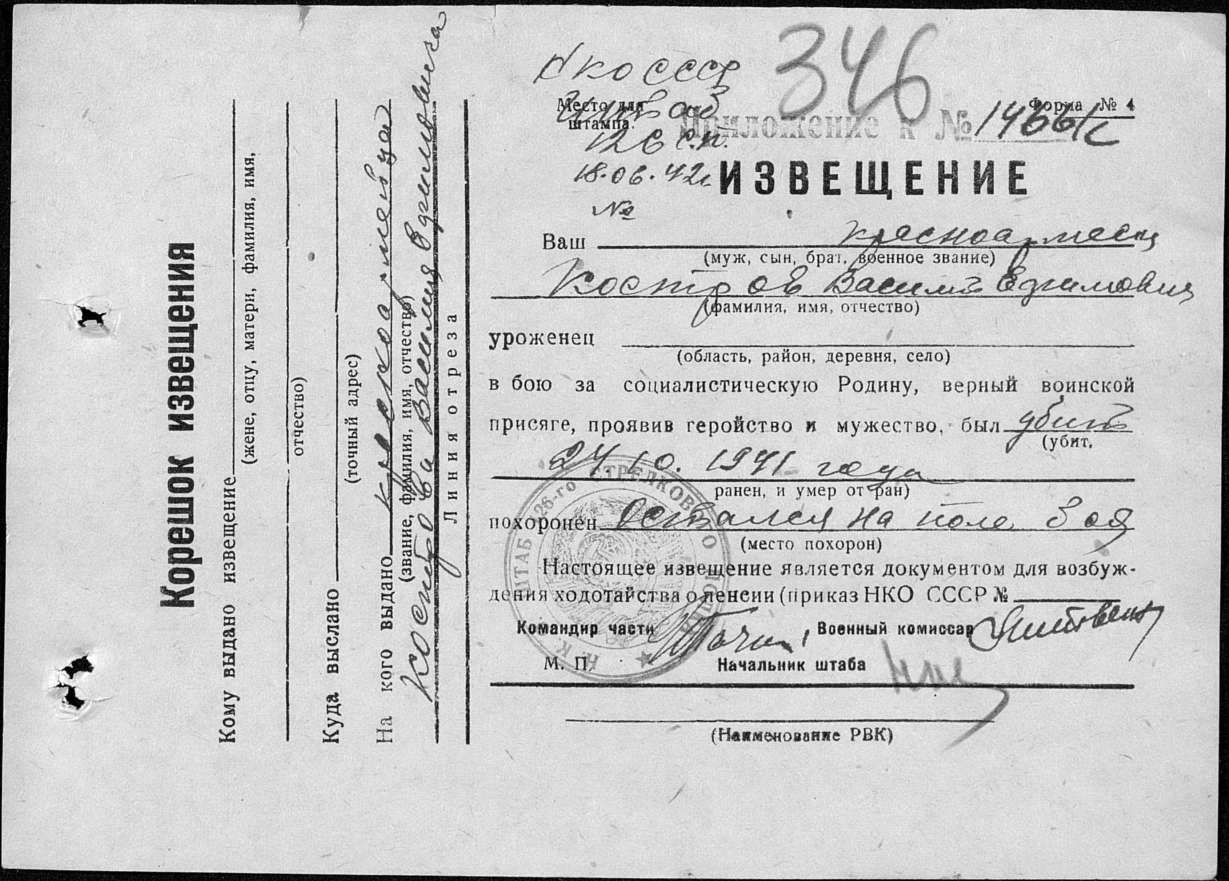 Корешок извещения
Кому выдано извещение
(жене, отцу, матери, фамилия, имя,
отчество)
Куда выслано
(точный адрес)
На кого выдано красноармейца
(звание, фамилия, имя, отчество)
Кострова Василия Ефимовича
Линия отреза
НКО СССР
346
Место для
штампа.
Форма № 4
Приложение к №
126 с.п.
18.06.42г
№
ИЗВЕЩЕНИЕ
Ваш красноармеец
(муж, сын, брат, военное звание)
Костров Василий Ефимович
(фамилия, имя, отчество)
уроженец
(область, район, деревня, село)
в бою за социалистическую Родину, верный воинской
присяге, проявив геройство и мужество, был убит
(убит,
24 10. 1941 года
ранен, и умер от ран)
похоронен Остался на поле боя
(место похорон)
Настоящее извещение является документом для возбуж-
дения ходотайства о пенсии (приказ НКО СССР №
Командир части
Военный комиссар
М. П.
Начальник штаба
(Наименование РВК)
ШТАБ 126-го СТРЕЛКОВОГО ПОЛКА Н.К.О.